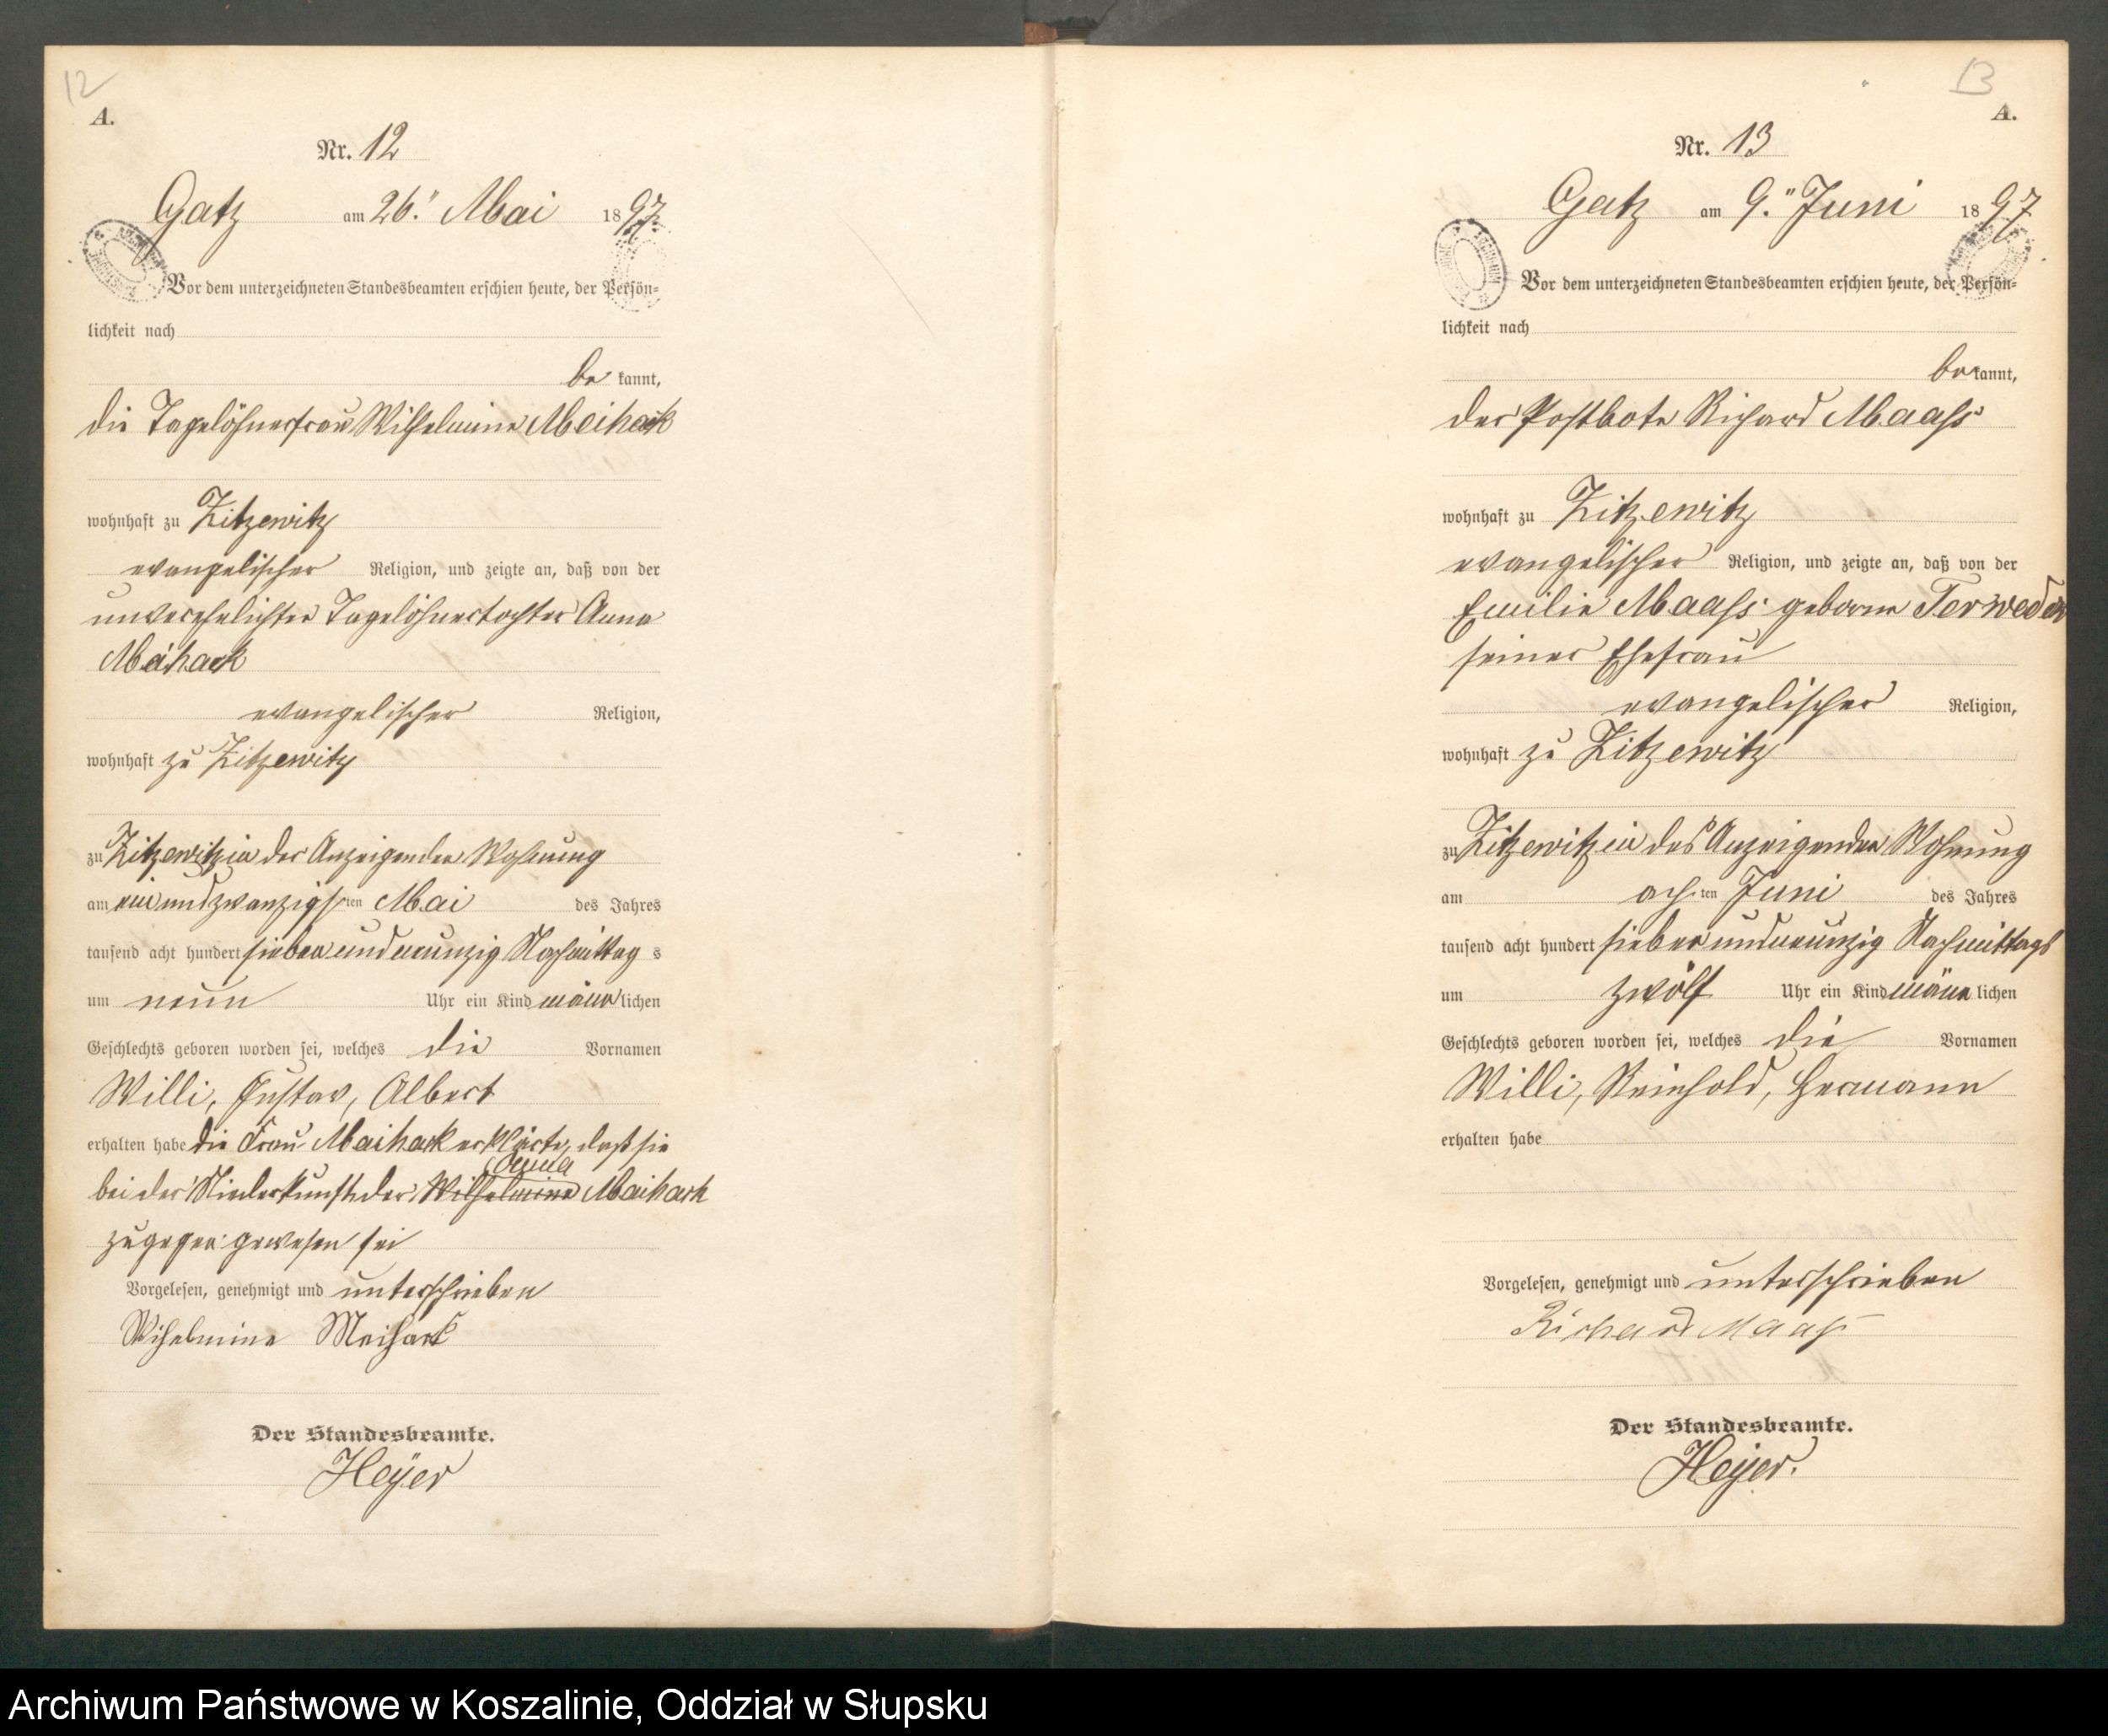 12
A.
Nr. 12
Gatz am 26." Mai 1897.
Vor dem unterzeichneten Standesbeamten erschien heute, der Persön-
lichkeit nach
be kannt,
die Tagelöhnerfrau Wilhelmine Meihack
wohnhaft zu Zitzewitz
evangelischer Religion, und zeigte an, daß von der
unverehelichten Tagelöhnertochter Anna
Meihack
evangelischer Religion,
wohnhaft zu Zitzewitz
zu Zitzewitz in der Anzeigenden Wohnung
am einundzwanzigsten Mai des Jahres
tausend acht hundert siebenundneunzig Nachmittag s
um neun Uhr ein Kind männlichen
Geschlechts geboren worden sei, welches die Vornamen
Willi, Gustav, Albert
erhalten habe die Frau Maihack erklärte, daß sie
Anna
bei der Niederkunft der Wilhelmine Maihack
zugegen gewesen sei
Vorgelesen, genehmigt und unterschrieben
Wihelmine Meihack
Der Standesbeamte.
Heyer
13
A.
Nr. 13
Gatz am 9." Juni 1897
Vor dem unterzeichneten Standesbeamten erschien heute, der Persön-
lichkeit nach
be kannt,
der Postbote Richard Maaß
wohnhaft zu Zitzewitz
evangelischer Religion, und zeigte an, daß von der
Emilie Maaß geborne Terweden
seiner Ehefrau
evangelischer Religion,
wohnhaft zu Zitzewitz
zu Zitzewitz in des Anzeigenden Wohnung
am achten Juni des Jahres
tausend acht hundert siebenundneunzig Nachmittags
um zwölf Uhr ein Kind männlichen
Geschlechts geboren worden sei, welches die Vornamen
Willi, Reinhold, Hermann
erhalten habe
Vorgelesen, genehmigt und unterschrieben
Richard Maaß
Der Standesbeamte.
Heyer.
Archiwum Państwowe w Koszalinie, Oddział w Słupsku